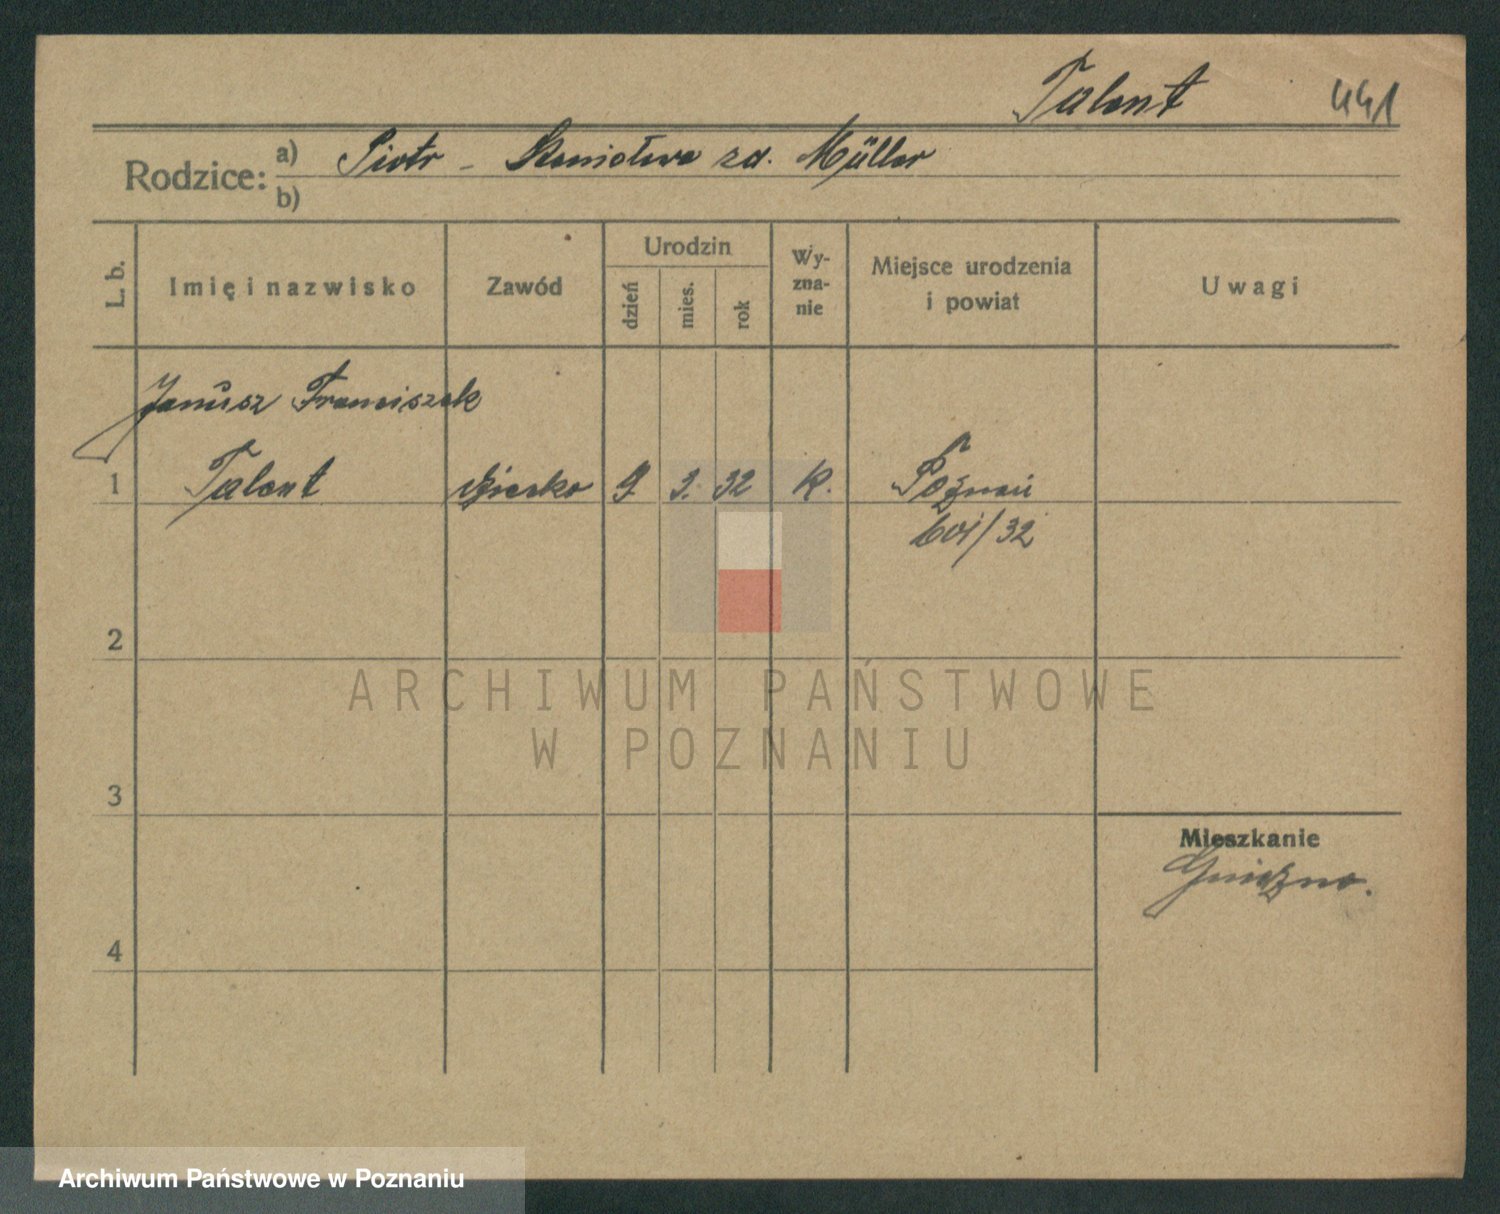 Talent 441
Rodzice: a) Piotr - Stanisława zd. Müller
b)
L. b. Imię i nazwisko Zawód Urodzin dzień mies. rok Wy-zna-nie Miejsce urodzenia i powiat Uwagi
Janusz Franciszek
1 Talent dziecko 9. 3. 32 K. Poznań
601/32
2
ARCHIWUM PAŃSTWOWE
W POZNANIU
3
Mieszkanie
Gniezno.
4
Archiwum Państwowe w Poznaniu